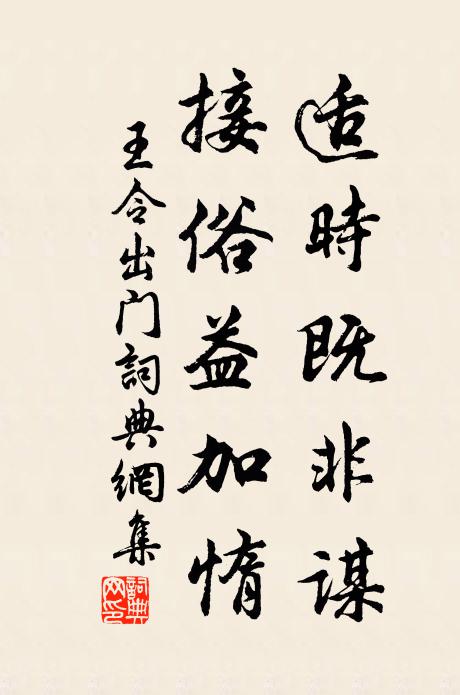 适時既非謀
接俗益加惰
王令出门詞典網集
詞典网印